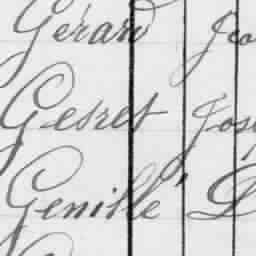 Gérard
Gesret Jos
Genille